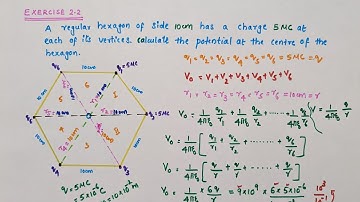 EXERCISE 2.2
A regular hexagon of side 10cm has a charge 5MC at
each of its vertices. calculate the potential at the centre of the
hexagon.
q₁ = q₂ = q₃ = q₄ = q₅ = q₆ = 5MC = q
V₀ = V₁ + V₂ + V₃ + V₄ + V₅ + V₆
r₁ = r₂ = r₃ = r₄ = r₅ = r₆ = 10cm = r
V₀ = 1/4πε₀ q₁/r₁ + 1/4πε₀ q₂/r₂ + ..... + 1/4πε₀ q₆/r₆
V = 1/4πε₀ q/r
V₀ = 1/4πε₀ [ q₁/r₁ + q₂/r₂ + ..... + q₆/r₆ ]
V₀ = 1/4πε₀ [ q/r + q/r + ..... + q/r ]
V₀ = 1/4πε₀ × 6q/r = 9×10⁹ × 6×5×10⁻⁶
q₁ = 5MC
10cm
10cm
10cm
10cm
q = 5MC
= 5×10⁻⁶C